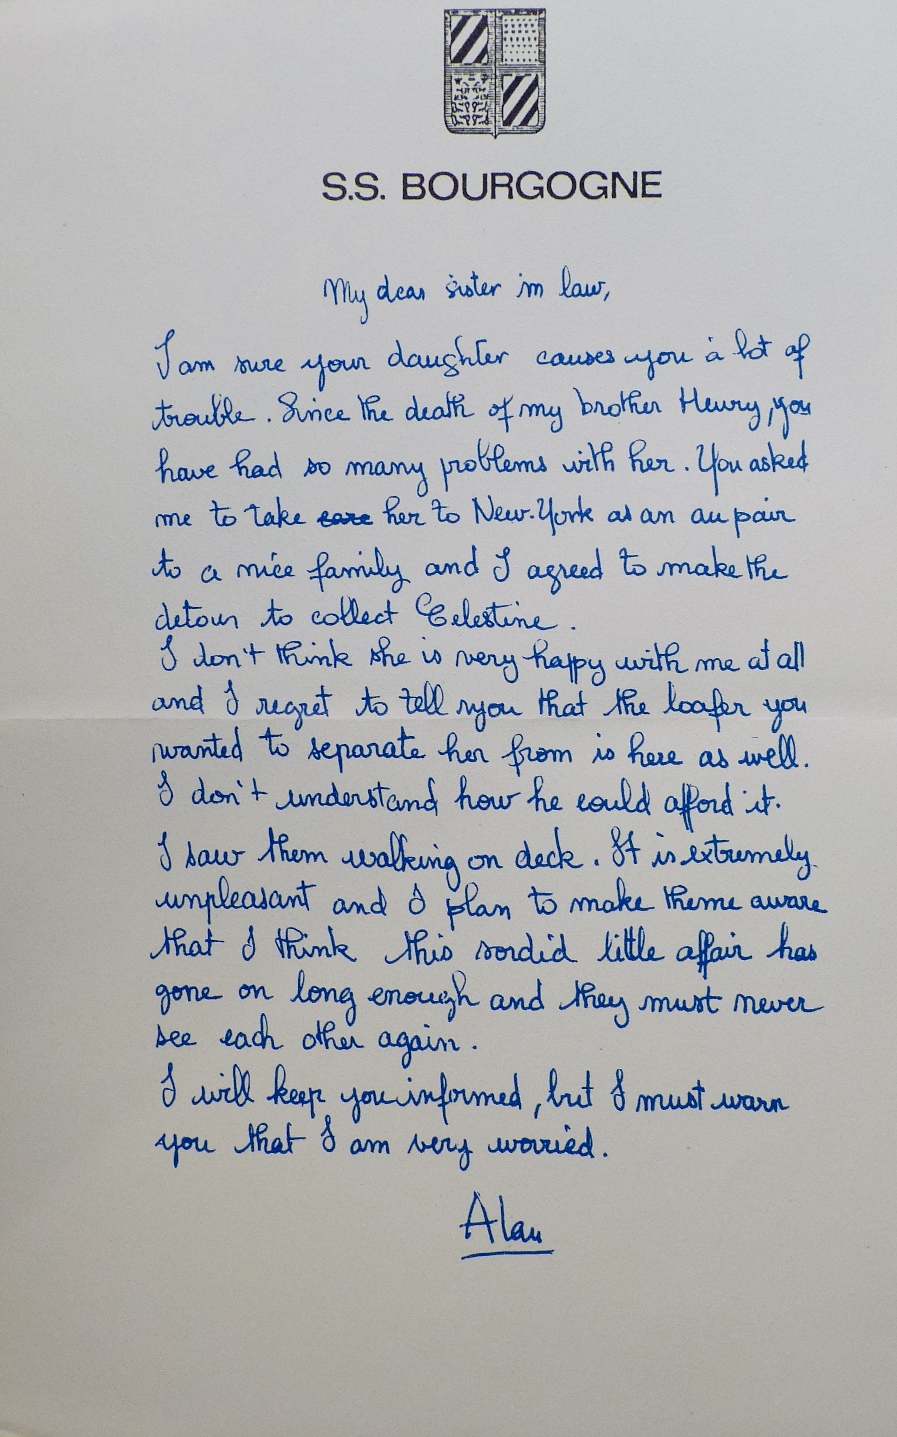 S.S. BOURGOGNE
My dear sister in law,
I am sure your daughter causes you a lot of
trouble. Since the death of my brother Henry, you
have had so many problems with her. You asked
me to take care her to New-York as an au pair
to a nice family and I agreed to make the
detour to collect Celestine.
I don't think she is very happy with me at all
and I regret to tell you that the loafer you
wanted to separate her from is here as well.
I don't understand how he could afford it.
I saw them walking on deck. It is extremely
unpleasant and I plan to make theme aware
that I think this sordid little affair has
gone on long enough and they must never
see each other again.
I will keep you informed, but I must warn
you that I am very worried.
Alan